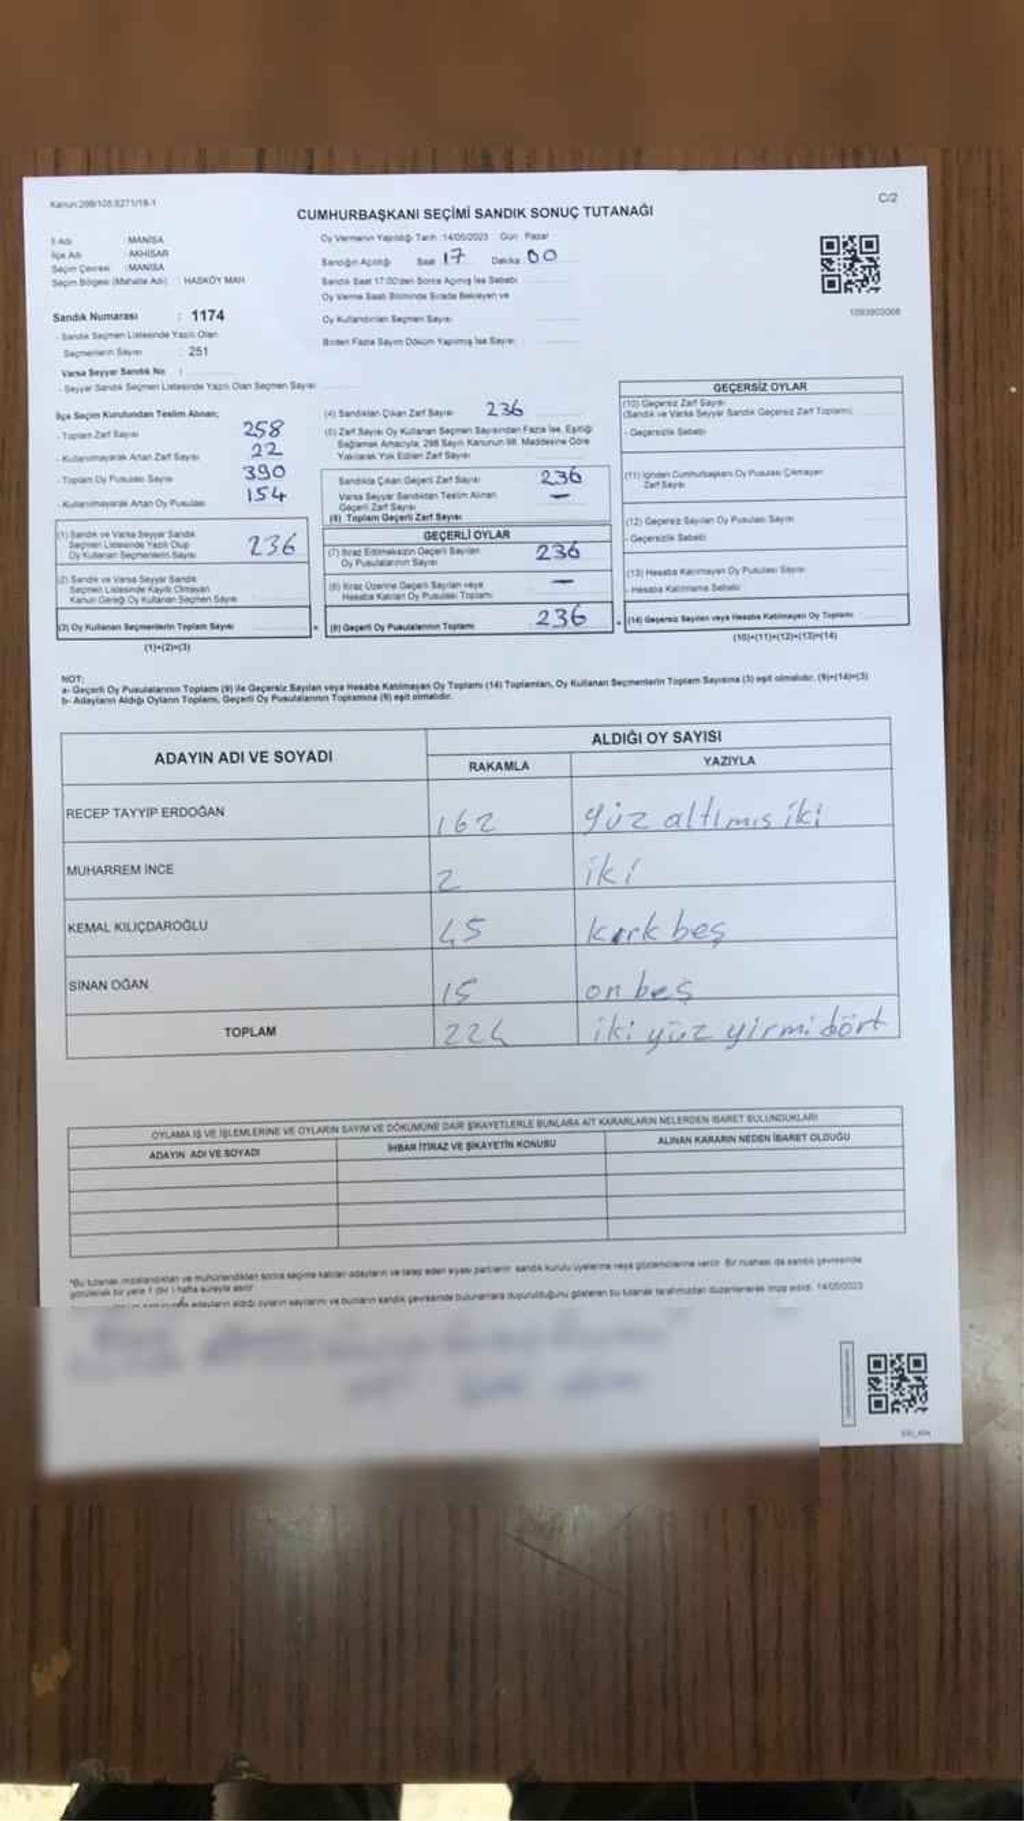 Kanun:298/105;6271/18-1
C/2
CUMHURBAŞKANI SEÇİMİ SANDIK SONUÇ TUTANAĞI
İl Adı : MANİSA
İlçe Adı : AKHİSAR
Seçim Çevresi : MANİSA
Seçim Bölgesi (Mahalle Adı) : HASKÖY MAH.
Oy Vermenin Yapıldığı Tarih :14/05/2023 Gün : Pazar
Sandığın Açıldığı Saat 17 Dakika 00
Sandık Saat 17:00'den Sonra Açılmış İse Sebebi
Oy Verme Saati Bitiminde Sırada Bekleyen ve
Oy Kullandırılan Seçmen Sayısı
Birden Fazla Sayım Döküm Yapılmış İse Sayısı
Sandık Numarası : 1174
- Sandık Seçmen Listesinde Yazılı Olan
Seçmenlerin Sayısı : 251
Varsa Seyyar Sandık No :
- Seyyar Sandık Seçmen Listesinde Yazılı Olan Seçmen Sayısı
İlçe Seçim Kurulundan Teslim Alınan;
- Toplam Zarf Sayısı 258
- Kullanılmayarak Artan Zarf Sayısı 22
- Toplam Oy Pusulası Sayısı 390
- Kullanılmayarak Artan Oy Pusulası 154
(1) Sandık ve Varsa Seyyar Sandık
Seçmen Listesinde Yazılı Olup
Oy Kullanan Seçmenlerin Sayısı 236
(2) Sandık ve Varsa Seyyar Sandık
Seçmen Listesinde Kayıtlı Olmayan
Kanun Gereği Oy Kullanan Seçmen Sayısı
(3) Oy Kullanan Seçmenlerin Toplam Sayısı
(1)+(2)=(3)
(4) Sandıktan Çıkan Zarf Sayısı 236
(5) Zarf Sayısı Oy Kullanan Seçmen Sayısından Fazla İse, Eşitliği
Sağlamak Amacıyla; 298 Sayılı Kanunun 98. Maddesine Göre
Yakılarak Yok Edilen Zarf Sayısı
Sandıkta Çıkan Geçerli Zarf Sayısı 236
Varsa Seyyar Sandıktan Teslim Alınan
Geçerli Zarf Sayısı —
(6) Toplam Geçerli Zarf Sayısı
GEÇERLİ OYLAR
(7) İtiraz Edilmeksizin Geçerli Sayılan
Oy Pusulalarının Sayısı 236
(8) İtiraz Üzerine Geçerli Sayılan veya
Hesaba Katılan Oy Pusulası Toplamı —
(9) Geçerli Oy Pusulalarının Toplamı 236
GEÇERSİZ OYLAR
(10) Geçersiz Zarf Sayısı
(Sandık ve Varsa Seyyar Sandık Geçersiz Zarf Toplamı)
- Geçersizlik Sebebi
(11) İçinden Cumhurbaşkanı Oy Pusulası Çıkmayan
Zarf Sayısı
(12) Geçersiz Sayılan Oy Pusulası Sayısı
- Geçersizlik Sebebi
(13) Hesaba Katılmayan Oy Pusulası Sayısı
- Hesaba Katılmama Sebebi
(14) Geçersiz Sayılan veya Hesaba Katılmayan Oy Toplamı
(10)+(11)+(12)+(13)=(14)
NOT:
a- Geçerli Oy Pusulalarının Toplamı (9) ile Geçersiz Sayılan veya Hesaba Katılmayan Oy Toplamı (14) Toplamları, Oy Kullanan Seçmenlerin Toplam Sayısına (3) eşit olmalıdır. (9)+(14)=(3)
b- Adayların Aldığı Oyların Toplamı, Geçerli Oy Pusulalarının Toplamına (9) eşit olmalıdır.
ADAYIN ADI VE SOYADI
ALDIĞI OY SAYISI
RAKAMLA
YAZIYLA
RECEP TAYYİP ERDOĞAN 162 yüz altımıs iki
MUHARREM İNCE 2 iki
KEMAL KILIÇDAROĞLU 45 kırk beş
SİNAN OĞAN 15 on beş
TOPLAM 224 iki yüz yirmi dört
OYLAMA İŞ VE İŞLEMLERİNE VE OYLARIN SAYIM VE DÖKÜMÜNE DAİR ŞİKAYETLERLE BUNLARA AİT KARARLARIN NELERDEN İBARET BULUNDUKLARI
ADAYIN ADI VE SOYADI
İHBAR İTİRAZ VE ŞİKAYETİN KONUSU
ALINAN KARARIN NEDEN İBARET OLDUĞU
*Bu tutanak imzalandıktan ve mühürlendikten sonra seçime katılan adayların ve talep eden siyasi partilerin sandık kurulu üyelerine veya gözlemcilerine verilir. Bir nüshası da sandık çevresinde
görülecek bir yere 1 (bir ) hafta süreyle asılır.
adayların aldığı oyların sayılarını ve bunların sandık çevresinde bulunanlara duyurulduğunu gösteren bu tutanak tarafımızdan düzenlenerek imza edildi. 14/05/2023